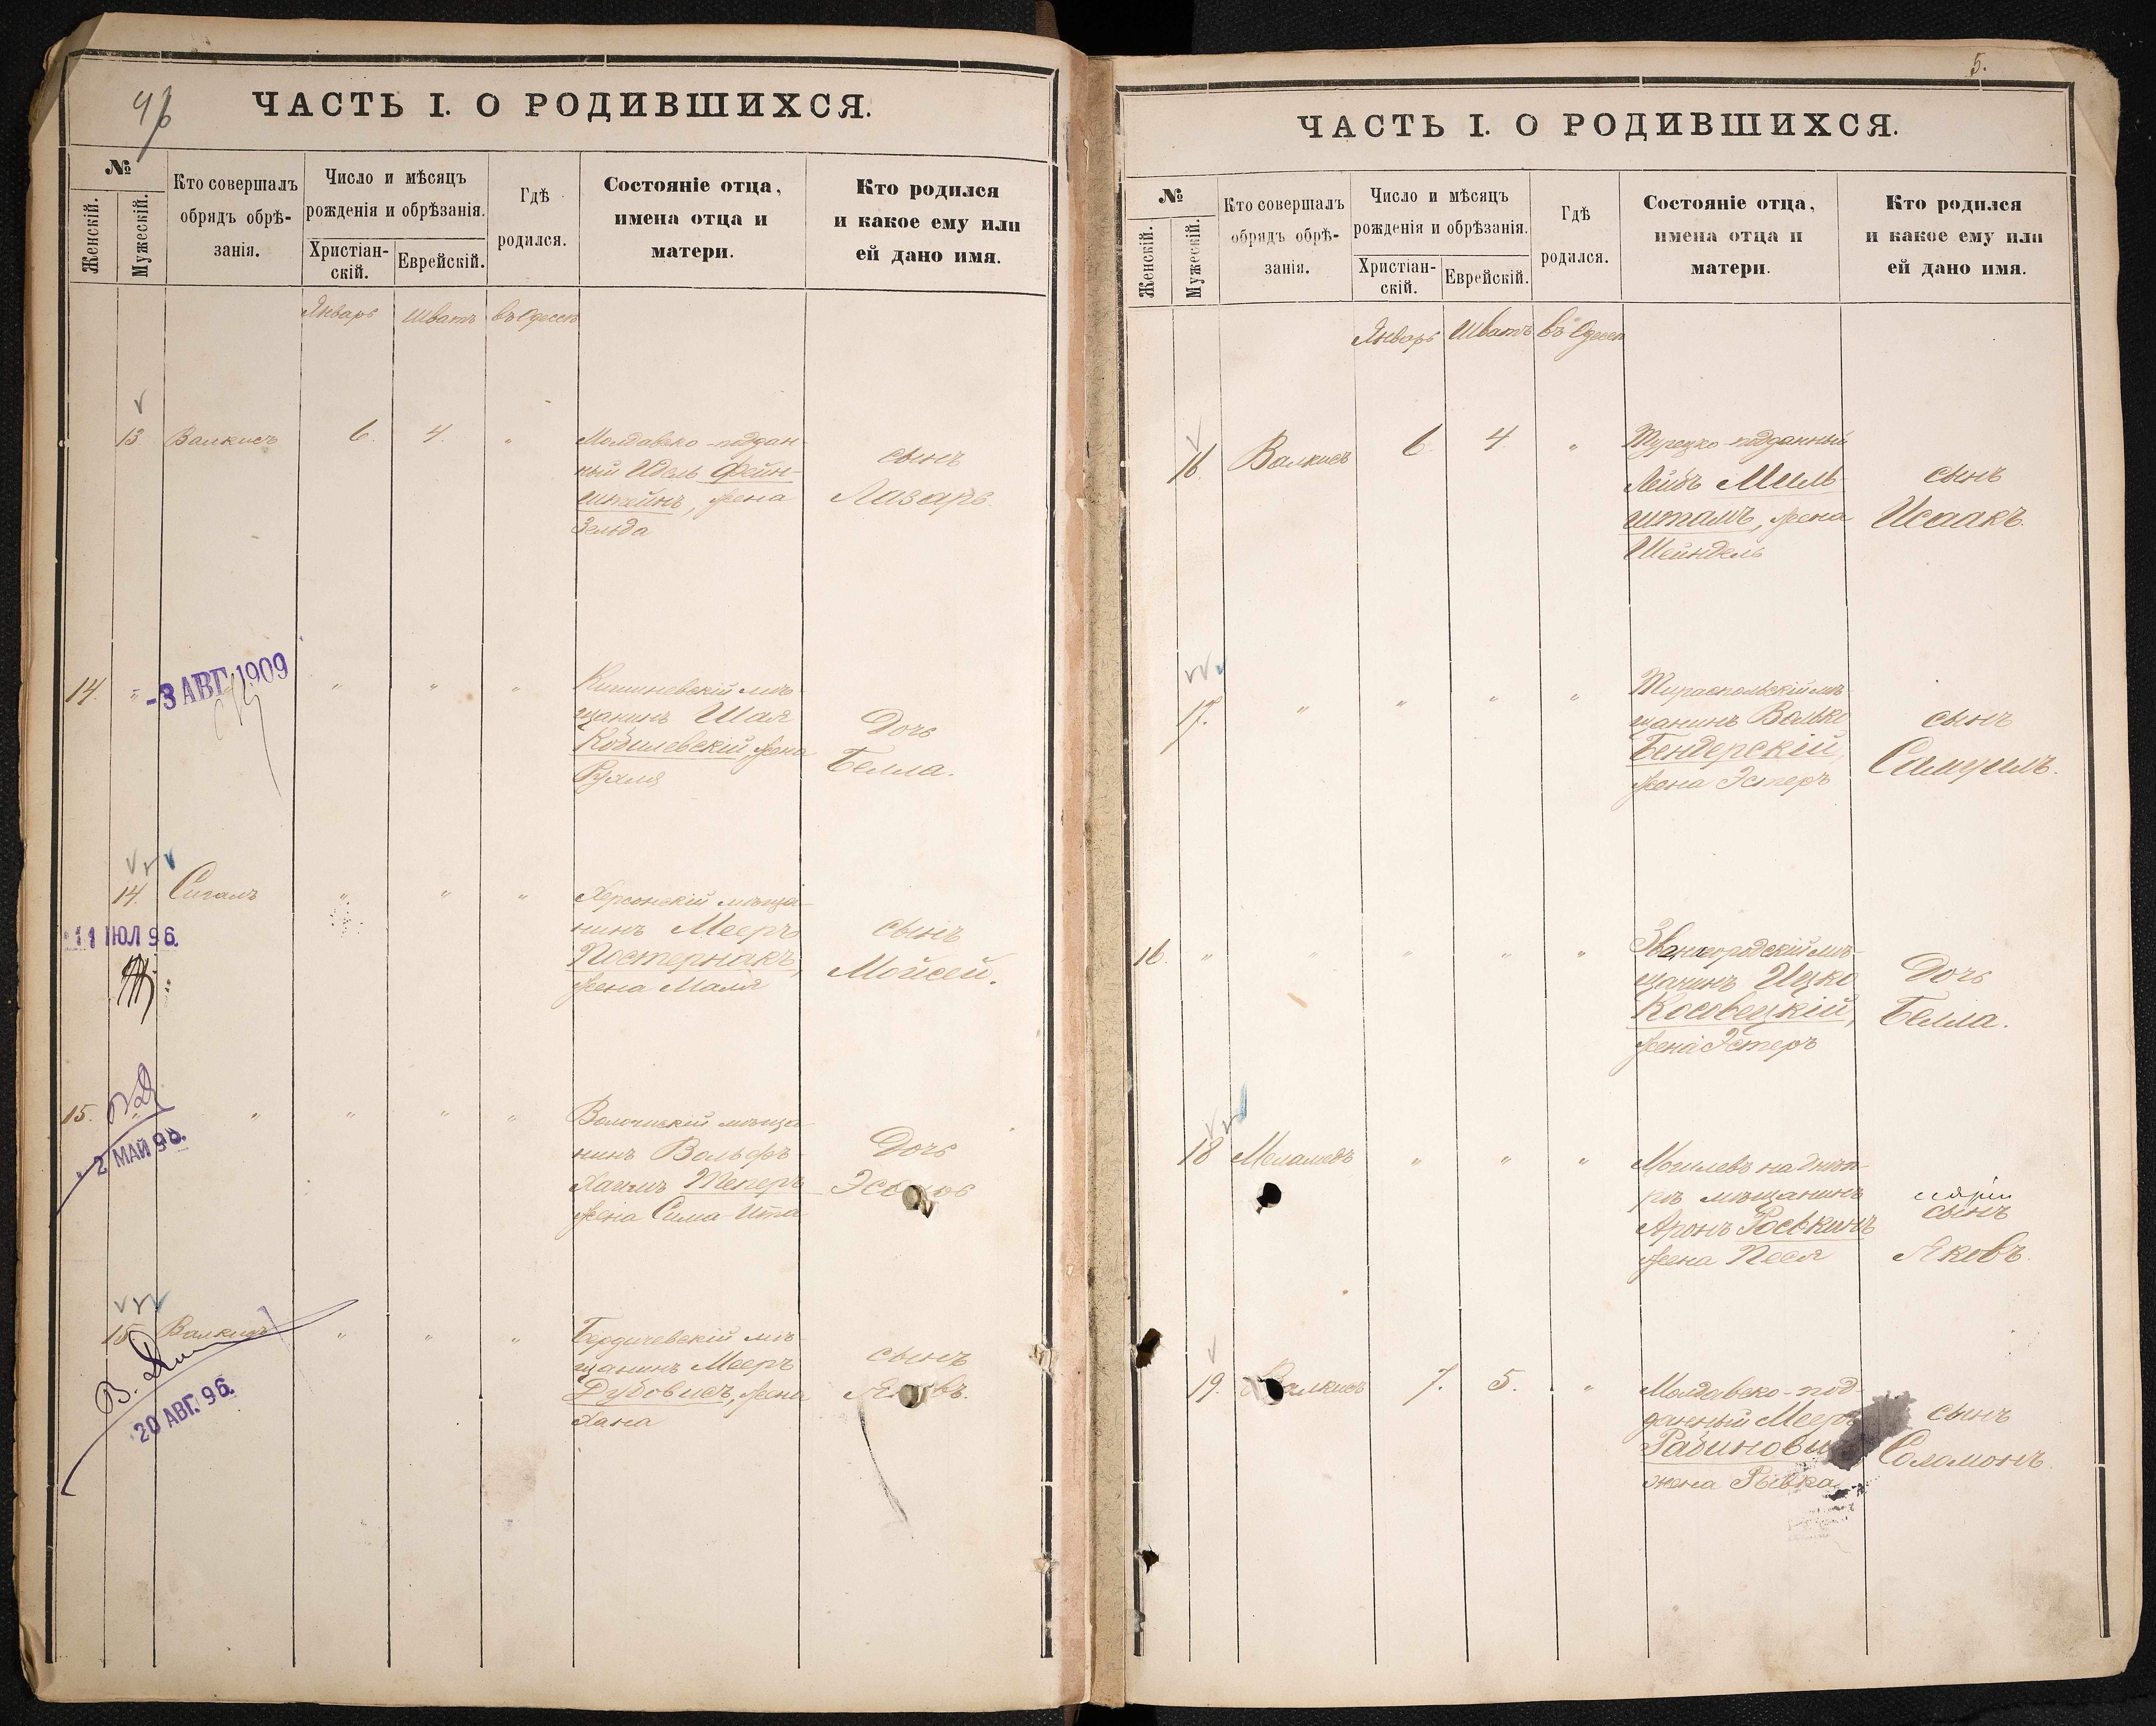 ЧАСТЬ I. О РОДИВШИХСЯ.
№
Женскій.
Мужескій.
Кто совершалъ
обрядъ обрѣ-
занія.
Число и мѣсяцъ
рожденія и обрѣзанія.
Христіан-
скій.
Еврейскій.
Гдѣ
родился.
Состояніе отца,
имена отца и
матери.
Кто родился
и какое ему или
ей дано имя.
Январь Шватъ въ Одессѣ
13 Валкисъ 6. 4. "
Молдавско-поддан-
ный Идель Фейн-
штейнъ, жена
Зельда
сынъ
Лазарь.
14. " - 3 АВГ. 1909 " " "
Кишиневскій мѣ-
щанинъ Шая
Кобилевскій, жена
Рухля
Дочь
Белла.
14. Сигалъ " " "
11 ЮЛ 96.
Херсонскій мѣща-
нинъ Мееръ
Постернакъ,
жена Маля
сынъ
Мойсей.
15. " " " " "
2 МАЙ 96.
мѣща-
нинъ Вольфъ-
Хаимъ Теперъ
жена Сима-Ита
Дочь
15. Валкисъ " " "
20 АВГ. 96.
Бердичевскій мѣ-
щанинъ Мееръ
Дубовисъ, жена
Хана
сынъ
5.
ЧАСТЬ I. О РОДИВШИХСЯ.
№
Женскій.
Мужескій.
Кто совершалъ
обрядъ обрѣ-
занія.
Число и мѣсяцъ
рожденія и обрѣзанія.
Христіан-
скій.
Еврейскій.
Гдѣ
родился.
Состояніе отца,
имена отца и
матери.
Кто родился
и какое ему или
ей дано имя.
Январь Шватъ въ Одессѣ
16. Валкисъ 6. 4. "
Турецко-подданный
Лейбъ Миль-
штамъ, жена
Шейндель
сынъ
Исаакъ.
17. " " " "
Тираспольскій мѣ-
щанинъ Волько
Бендерскій,
жена Эстеръ
сынъ
Самуилъ.
16. " " " " "
Звенигородскій мѣ-
щанинъ Ицко
Косовецкій,
жена Эстеръ
Дочь
Белла.
18 Меламедъ " " "
Могилевъ на Днѣп-
рѣ мѣщанинъ
Аронъ Роськинъ
жена Песя
сынъ
Яковъ.
19. Валкисъ 7. 5. "
Молдавско-под-
данный Мееръ
жена Рывка
сынъ
Соломонъ.